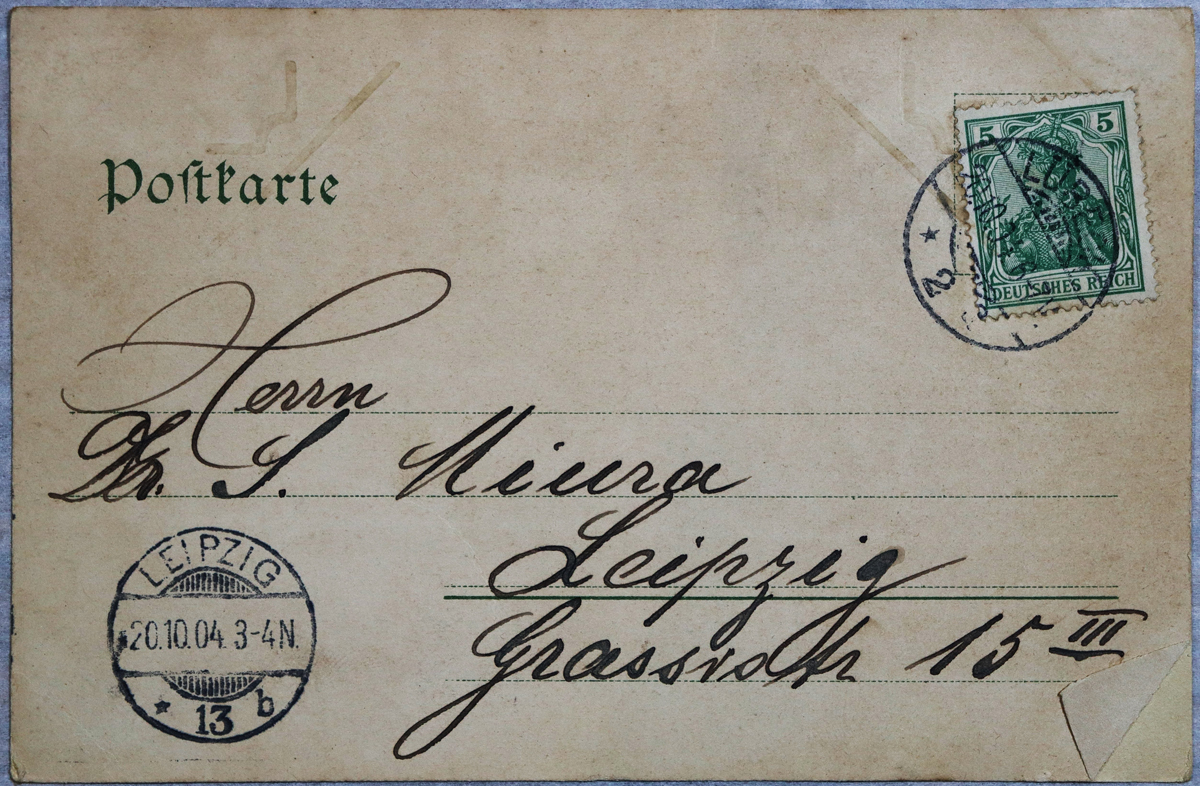 Postkarte
5 5
DEUTSCHES REICH
2
Herrn
Dr. S. Miura
Leipzig
Grassistr 15 III
LEIPZIG
20.10.04. 3-4N.
13 b